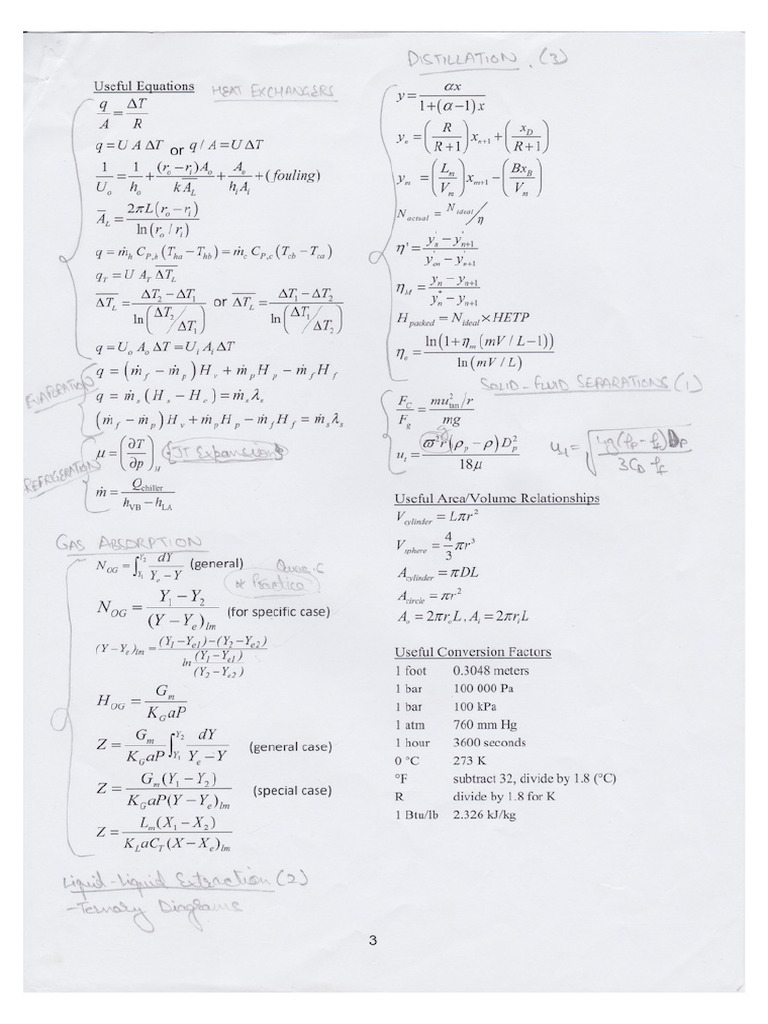 Useful Equations HEAT EXCHANGERS
q/A = ΔT/R
q = U A ΔT or q / A = U ΔT
1/U_o = 1/h_o + (r_o − r_i)A_o/(k A̅_L) + A_o/(h_i A_i) + (fouling)
A̅_L = 2πL(r_o − r_i)/ln(r_o / r_i)
q = ṁ_h C_P,h (T_ha − T_hb) = ṁ_c C_P,c (T_cb − T_ca)
q_T = U A_T Δ̅T̅_L
Δ̅T̅_L = (ΔT_2 − ΔT_1)/ln(ΔT_2/ΔT_1) or Δ̅T̅_L = (ΔT_1 − ΔT_2)/ln(ΔT_1/ΔT_2)
q = U_o A_o ΔT = U_i A_i ΔT
EVAPORATION
q = (ṁ_f − ṁ_p) H_v + ṁ_p H_p − ṁ_f H_f
q = ṁ_s (H_s − H_c) = ṁ_s λ_s
(ṁ_f − ṁ_p) H_v + ṁ_p H_p − ṁ_f H_f = ṁ_s λ_s
REFRIGERATION
μ = (∂T/∂p)_H (JT Expansion)
ṁ = Q_chiller/(h_VB − h_LA)
GAS ABSORPTION
N_OG = ∫_Y1^Y2 dY/(Y_e − Y) (general)
* Practice
N_OG = (Y_1 − Y_2)/(Y − Y_e)_lm (for specific case)
(Y − Y_e)_lm = ((Y_1 − Y_e1) − (Y_2 − Y_e2))/ln((Y_1 − Y_e1)/(Y_2 − Y_e2))
H_OG = G_m/(K_G aP)
Z = G_m/(K_G aP) ∫_Y1^Y2 dY/(Y_e − Y) (general case)
Z = G_m(Y_1 − Y_2)/(K_G aP(Y − Y_e)_lm) (special case)
Z = L_m(X_1 − X_2)/(K_L aC_T(X − X_e)_lm)
Liquid-Liquid Extraction (2)
- Ternary Diagrams
DISTILLATION . (3)
y = αx/(1 + (α − 1) x)
y_n = (R/(R+1)) x_n+1 + (x_D/(R+1))
y_m = (L_m/V_m) x_m+1 − (Bx_B/V_m)
N_actual = N_ideal/η
η' = (y'_n − y'_n+1)/(y'_en − y'_n+1)
η_M = (y_n − y_n+1)/(y*_n − y_n+1)
H_packed = N_ideal × HETP
η_o = ln(1 + η_m (mV / L − 1))/ln(mV / L)
SOLID - FLUID SEPARATIONS (1)
F_C/F_g = (mu²_tan/r)/mg
u_t = ϖ²r(ρ_p − ρ) D²_p/18μ g u_t = √(4g(ρ_p − ρ_f) D_p/3C_D ρ_f)
Useful Area/Volume Relationships
V_cylinder = Lπr²
V_sphere = 4/3 πr³
A_cylinder = πDL
A_circle = πr²
A_o = 2πr_oL , A_i = 2πr_iL
Useful Conversion Factors
1 foot 0.3048 meters
1 bar 100 000 Pa
1 bar 100 kPa
1 atm 760 mm Hg
1 hour 3600 seconds
0 °C 273 K
°F subtract 32, divide by 1.8 (°C)
R divide by 1.8 for K
1 Btu/lb 2.326 kJ/kg
3